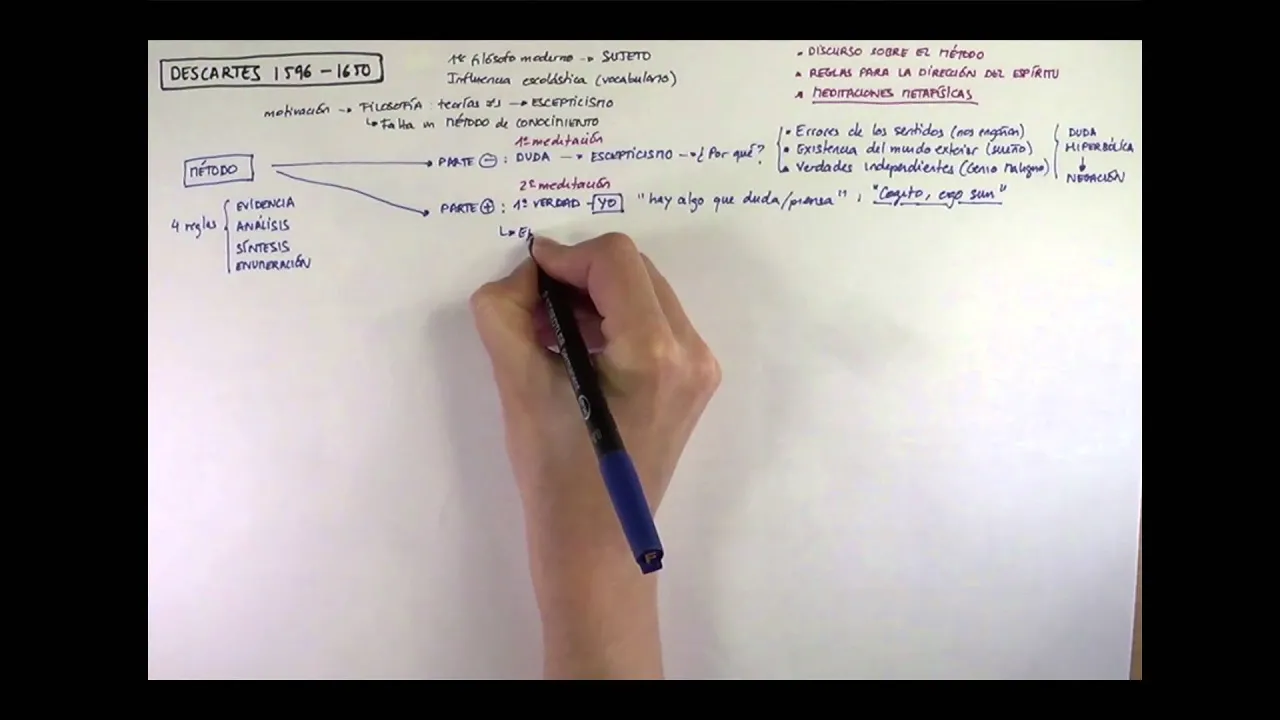 DESCARTES 1596 - 1650
1er filósofo moderno → SUJETO
Influencia escolástica (vocabulario)
• DISCURSO SOBRE EL MÉTODO
• REGLAS PARA LA DIRECCIÓN DEL ESPÍRITU
• MEDITACIONES METAFÍSICAS
motivación → FILOSOFÍA: teorías ≠s → ESCEPTICISMO
↳ Falta un MÉTODO de CONOCIMIENTO
MÉTODO
1ª meditación
PARTE ⊖ : DUDA → ESCEPTICISMO → ¿Por qué?
• Errores de los sentidos (nos engañan)
• Existencia del mundo exterior (sueño)
• Verdades independientes (Genio Maligno)
DUDA
HIPERBÓLICA
↓
NEGACIÓN
2ª meditación
PARTE ⊕ : 1ª VERDAD - YO "hay algo que duda/piensa" , "Cogito, ergo sum"
↳
4 reglas
EVIDENCIA
ANÁLISIS
SÍNTESIS
ENUMERACIÓN
STAEDTLER
F